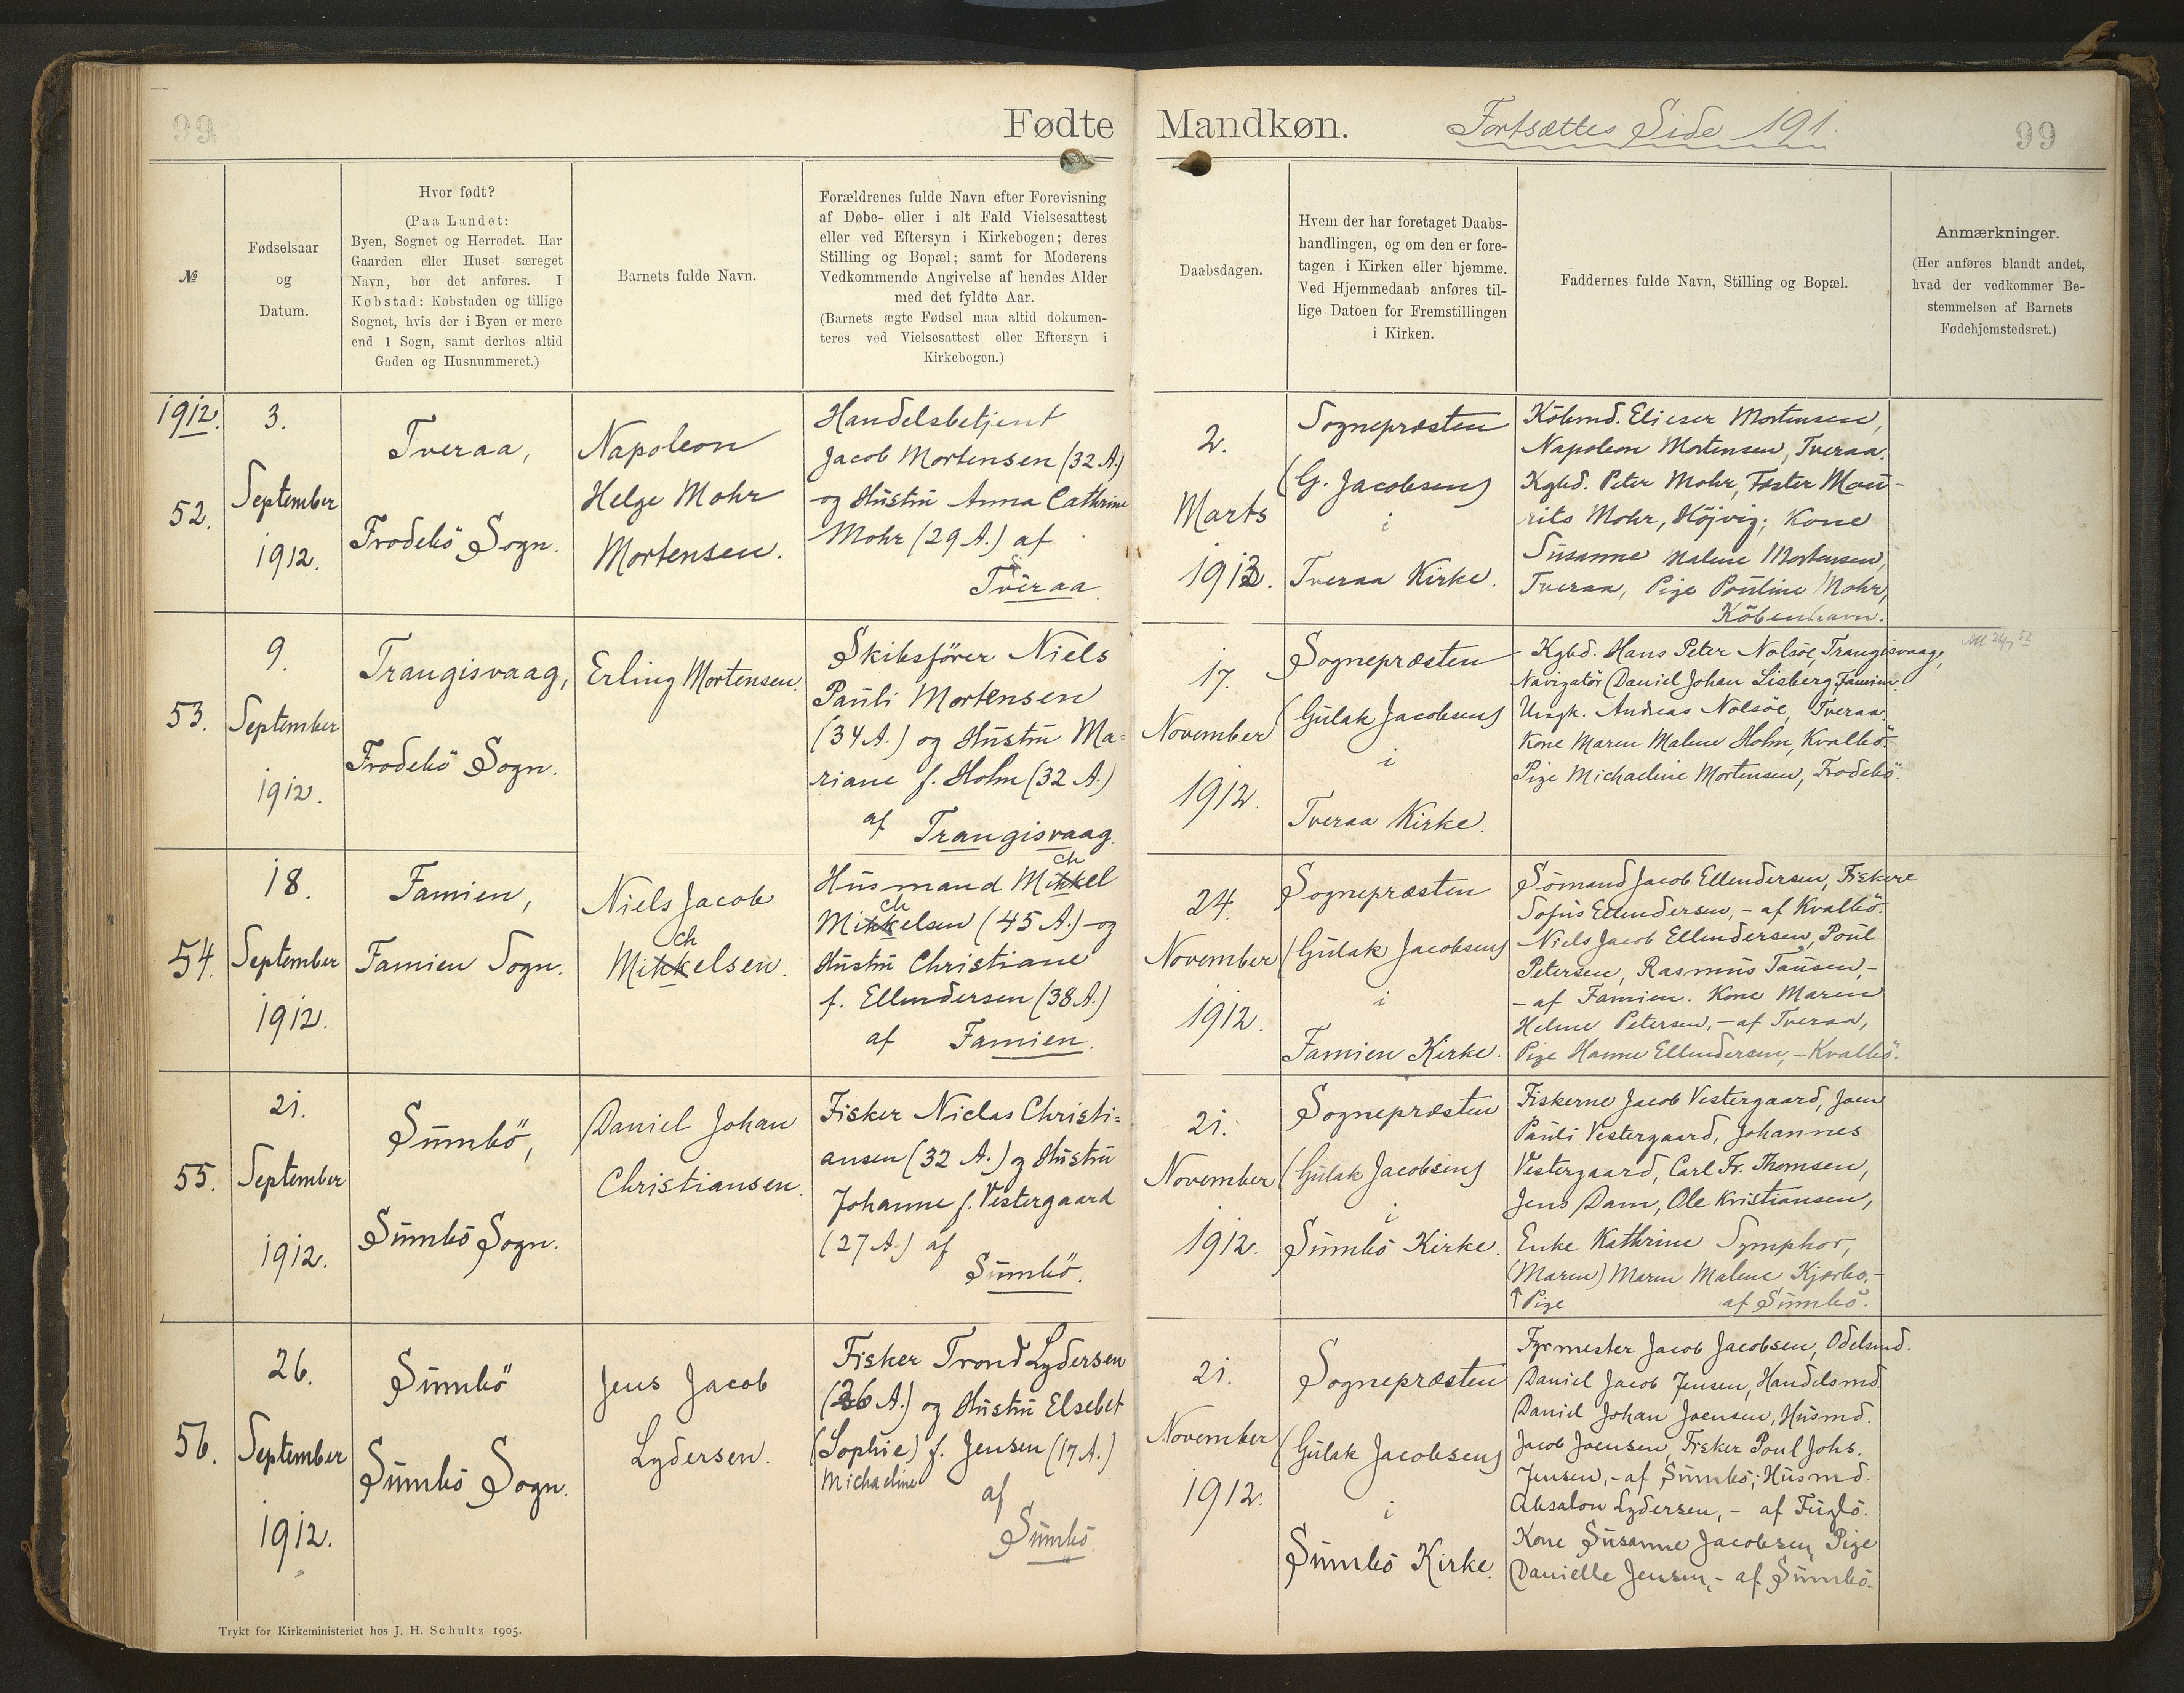 99
Fødte
Mandkøn.
Fortsættes Side 191.
99
№
Fødselsaar
og
Datum.
Hvor født?
(Paa Landet:
Byen, Sognet og Herredet. Har
Gaarden eller Huset særeget
Navn, bør det anføres. I
Købstad: Købstaden og tillige
Sognet, hvis der i Byen er mere
end 1 Sogn, samt derhos altid
Gaden og Husnummeret.)
Barnets fulde Navn.
Forældrenes fulde Navn efter Forevisning
af Døbe- eller i alt Fald Vielsesattest
eller ved Eftersyn i Kirkebogen; deres
Stilling og Bopæl; samt for Moderens
Vedkommende Angivelse af hendes Alder
med det fyldte Aar.
(Barnets ægte Fødsel maa altid dokumen-
teres ved Vielsesattest eller Eftersyn i
Kirkebogen.)
Daabsdagen.
Hvem der har foretaget Daabs-
handlingen, og om den er fore-
tagen i Kirken eller hjemme.
Ved Hjemmedaab anføres til-
lige Datoen for Fremstillingen
i Kirken.
Faddernes fulde Navn, Stilling og Bopæl.
Anmærkninger.
(Her anføres blandt andet,
hvad der vedkommer Be-
stemmelsen af Barnets
Fødehjemstedsret.)
1912.
52.
3.
September
1912.
Tveraa,
Frodebö Sogn.
Napoleon
Helge Mohr
Mortensen.
Handelsbetjent
Jacob Mortensen (32 A.)
og Hustru Anna Cathrine
Mohr (29 A.) af
Tveraa.
2.
Marts
1913.
Sognepræsten
(G. Jacobsen)
i
Tveraa Kirke.
Köbmd. Elieser Mortensen,
Napoleon Mortensen, Tveraa.
Kgbd. Peter Mohr, Fæster Mou-
rits Mohr, Höjvig; Kone
Susanne Malene Mortensen,
Tveraa, Pige Pouline Mohr,
Köbenhavn.
53.
9.
September
1912.
Trangisvaag,
Frodebö Sogn.
Erling Mortensen.
Skibsförer Niels
Pauli Mortensen
(34 A.) og Hustru Ma=
riane f. Holm (32 A.)
af Trangisvaag.
17.
November
1912.
Sognepræsten
(Gulak Jacobsen)
i
Tveraa Kirke.
Kgbd. Hans Peter Nolsöe, Trangisvaag,
Navigatör Daniel Johan Lisberg, Famien.
Ungk. Andreas Nolsöe, Tveraa.
Kone Maren Malene Holm, Kvalbö.
Pige Michaeline Mortensen, Frodebö.
54.
18.
September
1912.
Famien,
Famien Sogn.
Niels Jacob
ch
Mikkelsen.
ch
Husmand Mikkel
ch
Mikkelsen (45 A.) og
Hustru Christiane
f. Ellendersen (38 A.)
af Famien.
24.
November
1912.
Sognepræsten
(Gulak Jacobsen)
i
Famien Kirke.
Sömand Jacob Ellendersen, Fiskere
Sofus Ellendersen, - af Kvalbö.
Niels Jacob Ellendersen, Poul
Petersen, Rasmus Tausen, -
- af Famien. Kone Maren
Helene Petersen, - af Tveraa,
Pige Hanne Ellendersen, - Kvalbö.
55.
21.
September
1912.
Sumbö,
Sumbö Sogn.
Daniel Johan
Christiansen.
Fisker Niclas Christi=
ansen (32 A.) og Hustru
Johanne f. Vestergaard
(27 A.) af
Sumbö.
21.
November
1912.
Sognepræsten
(Gulak Jacobsen)
i
Sumbö Kirke.
Fiskerne Jacob Vestergaard, Joen
Pauli Vestergaard, Johannes
Vestergaard, Carl Fr. Thomsen,
Jens Dam, Ole Kristiansen,
Enke Kathrine Symphor,
(Maren) Maren Malene Kjærbo, -
↑ Pige af Sumbö.
56.
26.
September
1912.
Sumbö
Sumbö Sogn.
Jens Jacob
Lydersen.
Fisker Trond Lydersen
(26 A.) og Hustru Elsebet
(Sophie) f. Jensen (17 A.)
Michaeline
af
Sumbö.
21.
November
1912.
Sognepræsten
(Gulak Jacobsen)
i
Sumbö Kirke.
Fyrmester Jacob Jacobsen, Odelsmd.
Daniel Jacob Jensen, Handelsmd.
Daniel Johan Joensen, Husmd.
Jacob Joensen, Fisker Poul Johs.
Jensen, - af Sumbö; Husmd.
Absalon Lydersen, - af Fuglö.
Kone Susanne Jacobsen, Pige
Danielle Jensen, - af Sumbö.
Trykt for Kirkeministeriet hos J. H. Schultz 1905.